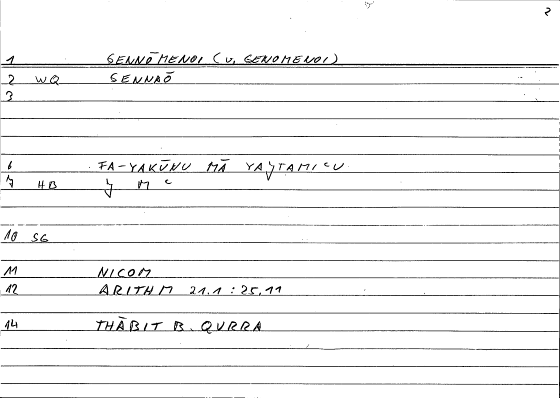 2
1 SENNŌMENOI (V. GENOMENOI)
2 WQ SENNAŌ
3
6 FA-YAKŪNU MĀ YAǦTAMIᶜU
7 HB Ǧ M ᶜ
10 SG
11 NICOM
12 ARITHM 21.1 : 25,11
14 THĀBIT B. QURRA